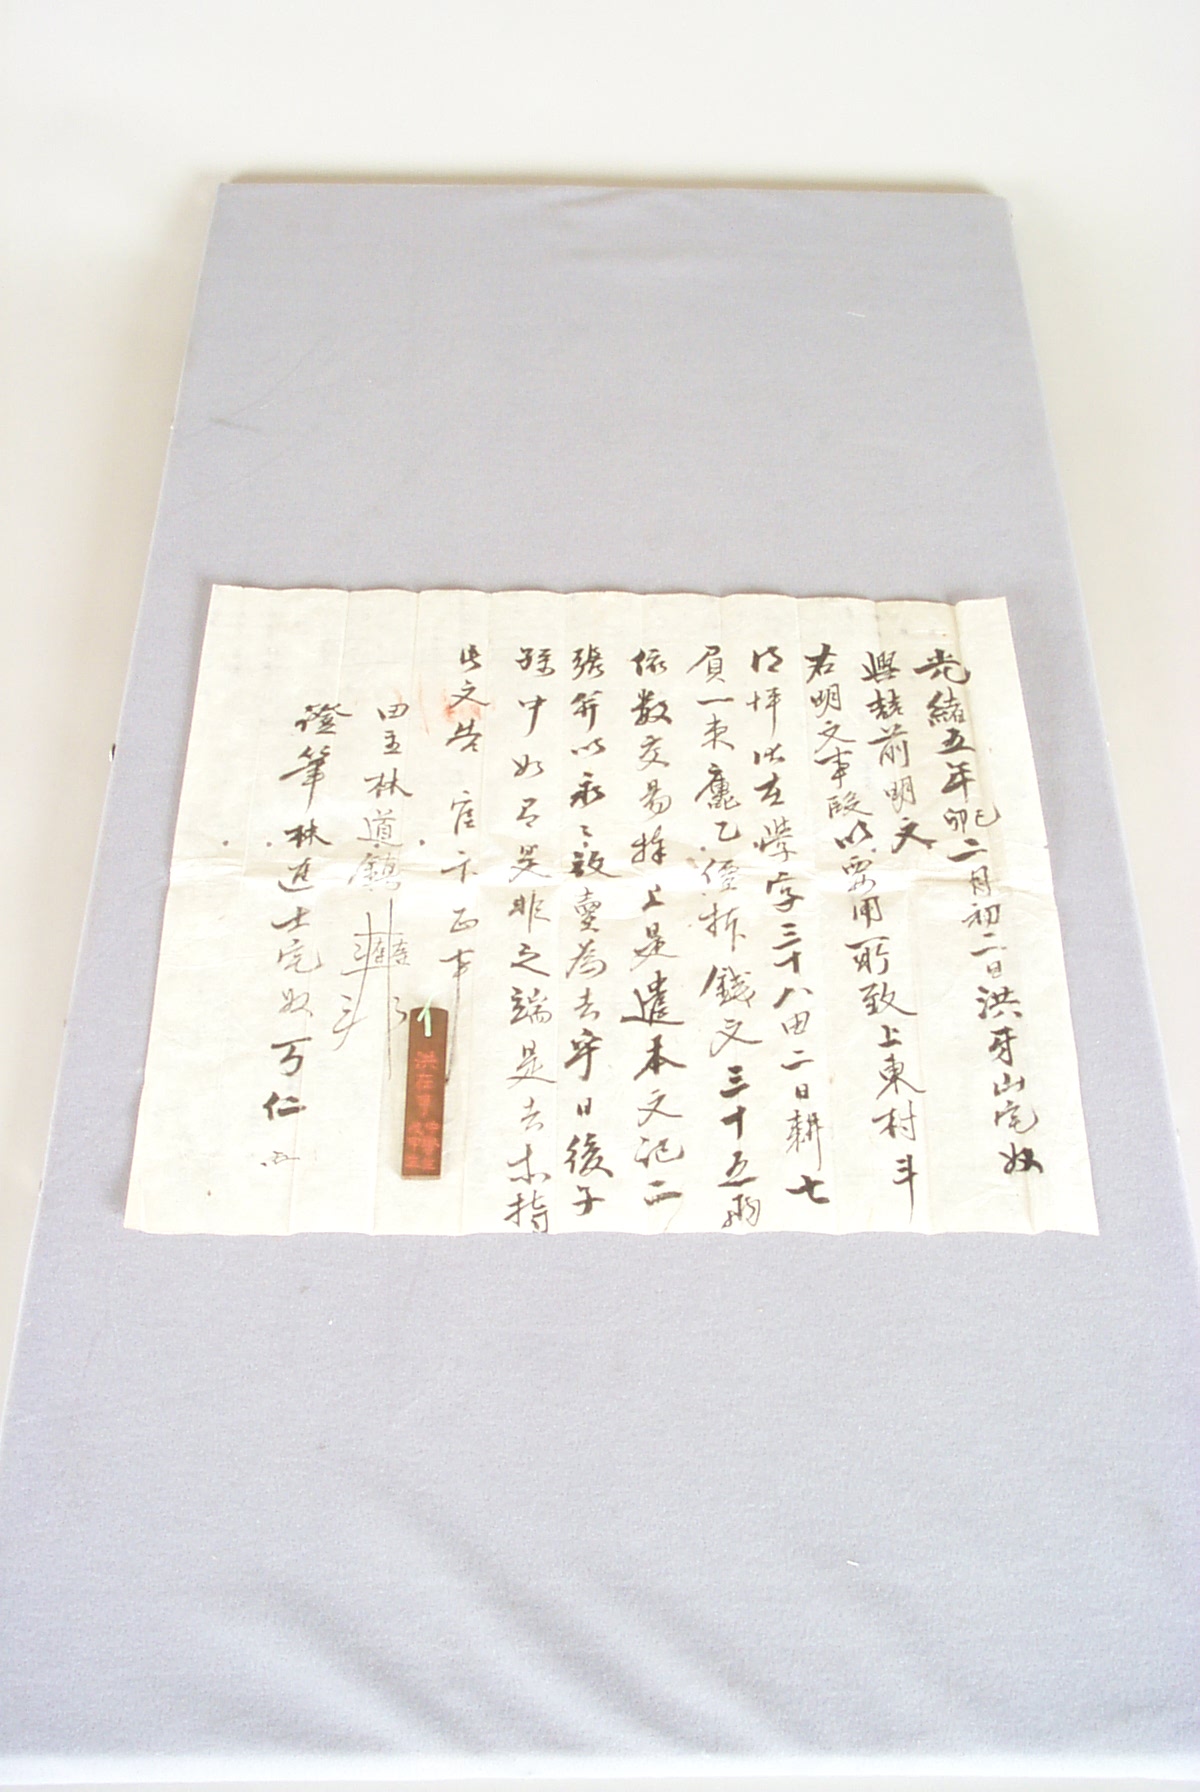 光緖五年己卯二月初二日洪牙山宅奴
興喆前明文
右明文事段以要用所致上東村斗
坪伏在學字三十八田二日耕七
負一束庫乙價折錢文三十五兩
依數交易捧上是遣本文記二
張幷以永〻放賣爲去乎日後子
孫中如有是非之端是去等持
此文告官卞正事
田主林道鎭
證筆林進士宅奴丂仁